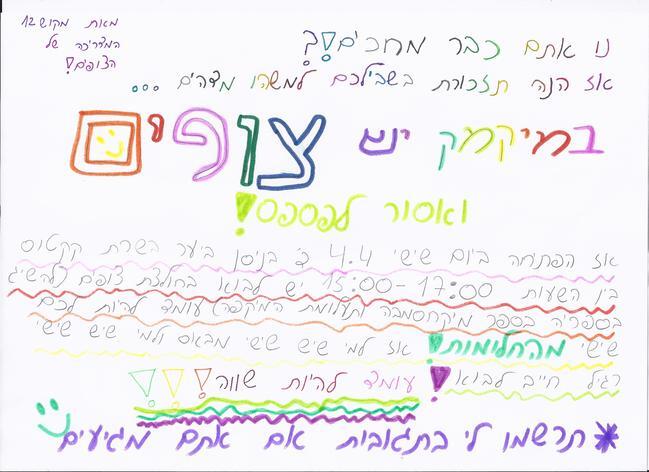 מאת מקוש12
המדריכה של
הצופים!
נו אתם כבר מחכים?!
אז הנה תזכורת בשבילכם למשהו מדהים ...
במיקמק יש צופים
ואסור לפספס!
אז הפתיחה ביום שישי 4.4 ב' בניסן ביער השרת קקטוס
בין השעות 17:00-15:00 יש לבוא בחולצת צופים (להשיג
בספריה בספר מיקחסמבה ותעלומת המקפה) עומד להיות לכם
שישי מהחלומות! אז למי שיש שישי מבאס ולמי שיש שישי
רגיל חייב לבוא! עומד להיות שווה!!!
*תרשמו לי בתגובות אם אתם מגיעים